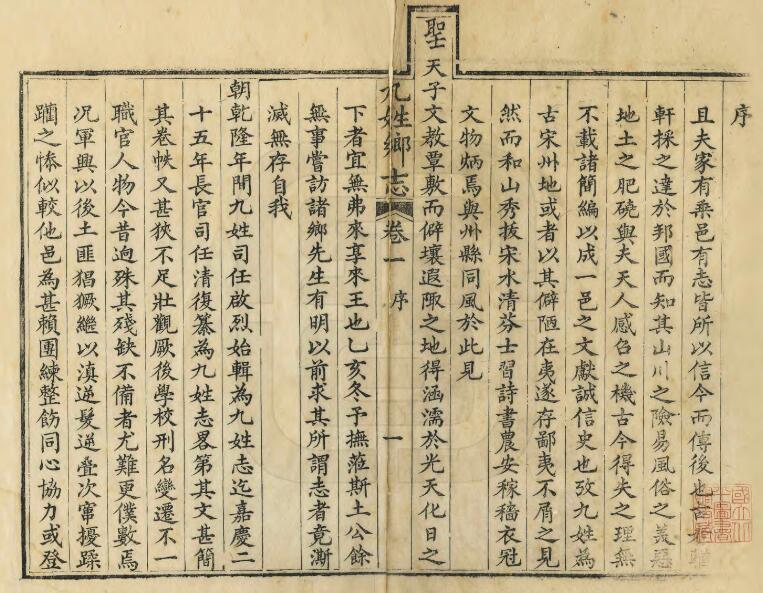 序
且夫家有乘邑有志皆所以信今而傳後也
軒採之達於邦國而知其山川之險易風俗之美惡
地土之肥磽與夫天人感召之機古今得失之理無
不載諸簡編以成一邑之文獻誠信史也攷九姓為
古宋州地或者以其僻陋在夷遂存鄙夷不屑之見
然而和山秀拔宋水清芬士習詩書農安稼穡衣冠
文物炳焉與州縣同風於此見
聖天子文教覃敷而僻壤遐陬之地得涵濡於光天化日之
九姓鄉志 卷一 序 一
下者宜無弗來享來王也乙亥冬予撫蒞斯土公餘
無事嘗訪諸鄉先生有明以前求其所謂志者竟漸
滅無存自我
朝乾隆年間九姓司任啟烈始輯為九姓志迄嘉慶二
十五年長官司任清復纂為九姓志畧第其文甚簡
其卷帙又甚狹不足壯觀厥後學校刑名變遷不一
職官人物今昔逈殊其殘缺不備者尤難更僕數焉
况軍興以後土匪猖獗繼以滇逆髮逆疊次竄擾蹂
躪之慘似較他邑為甚賴團練整飭同心協力或登